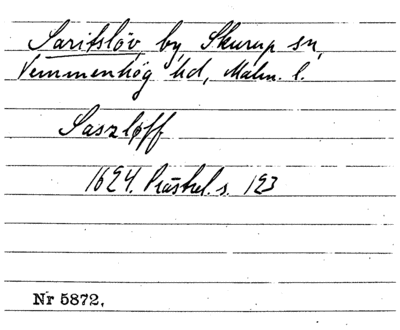 Saritslöv by, Skurup sn,
Vemmenhög hd, Malm. l.
Saszløff
1624. Prästrel. s. 123
Nr 5872.